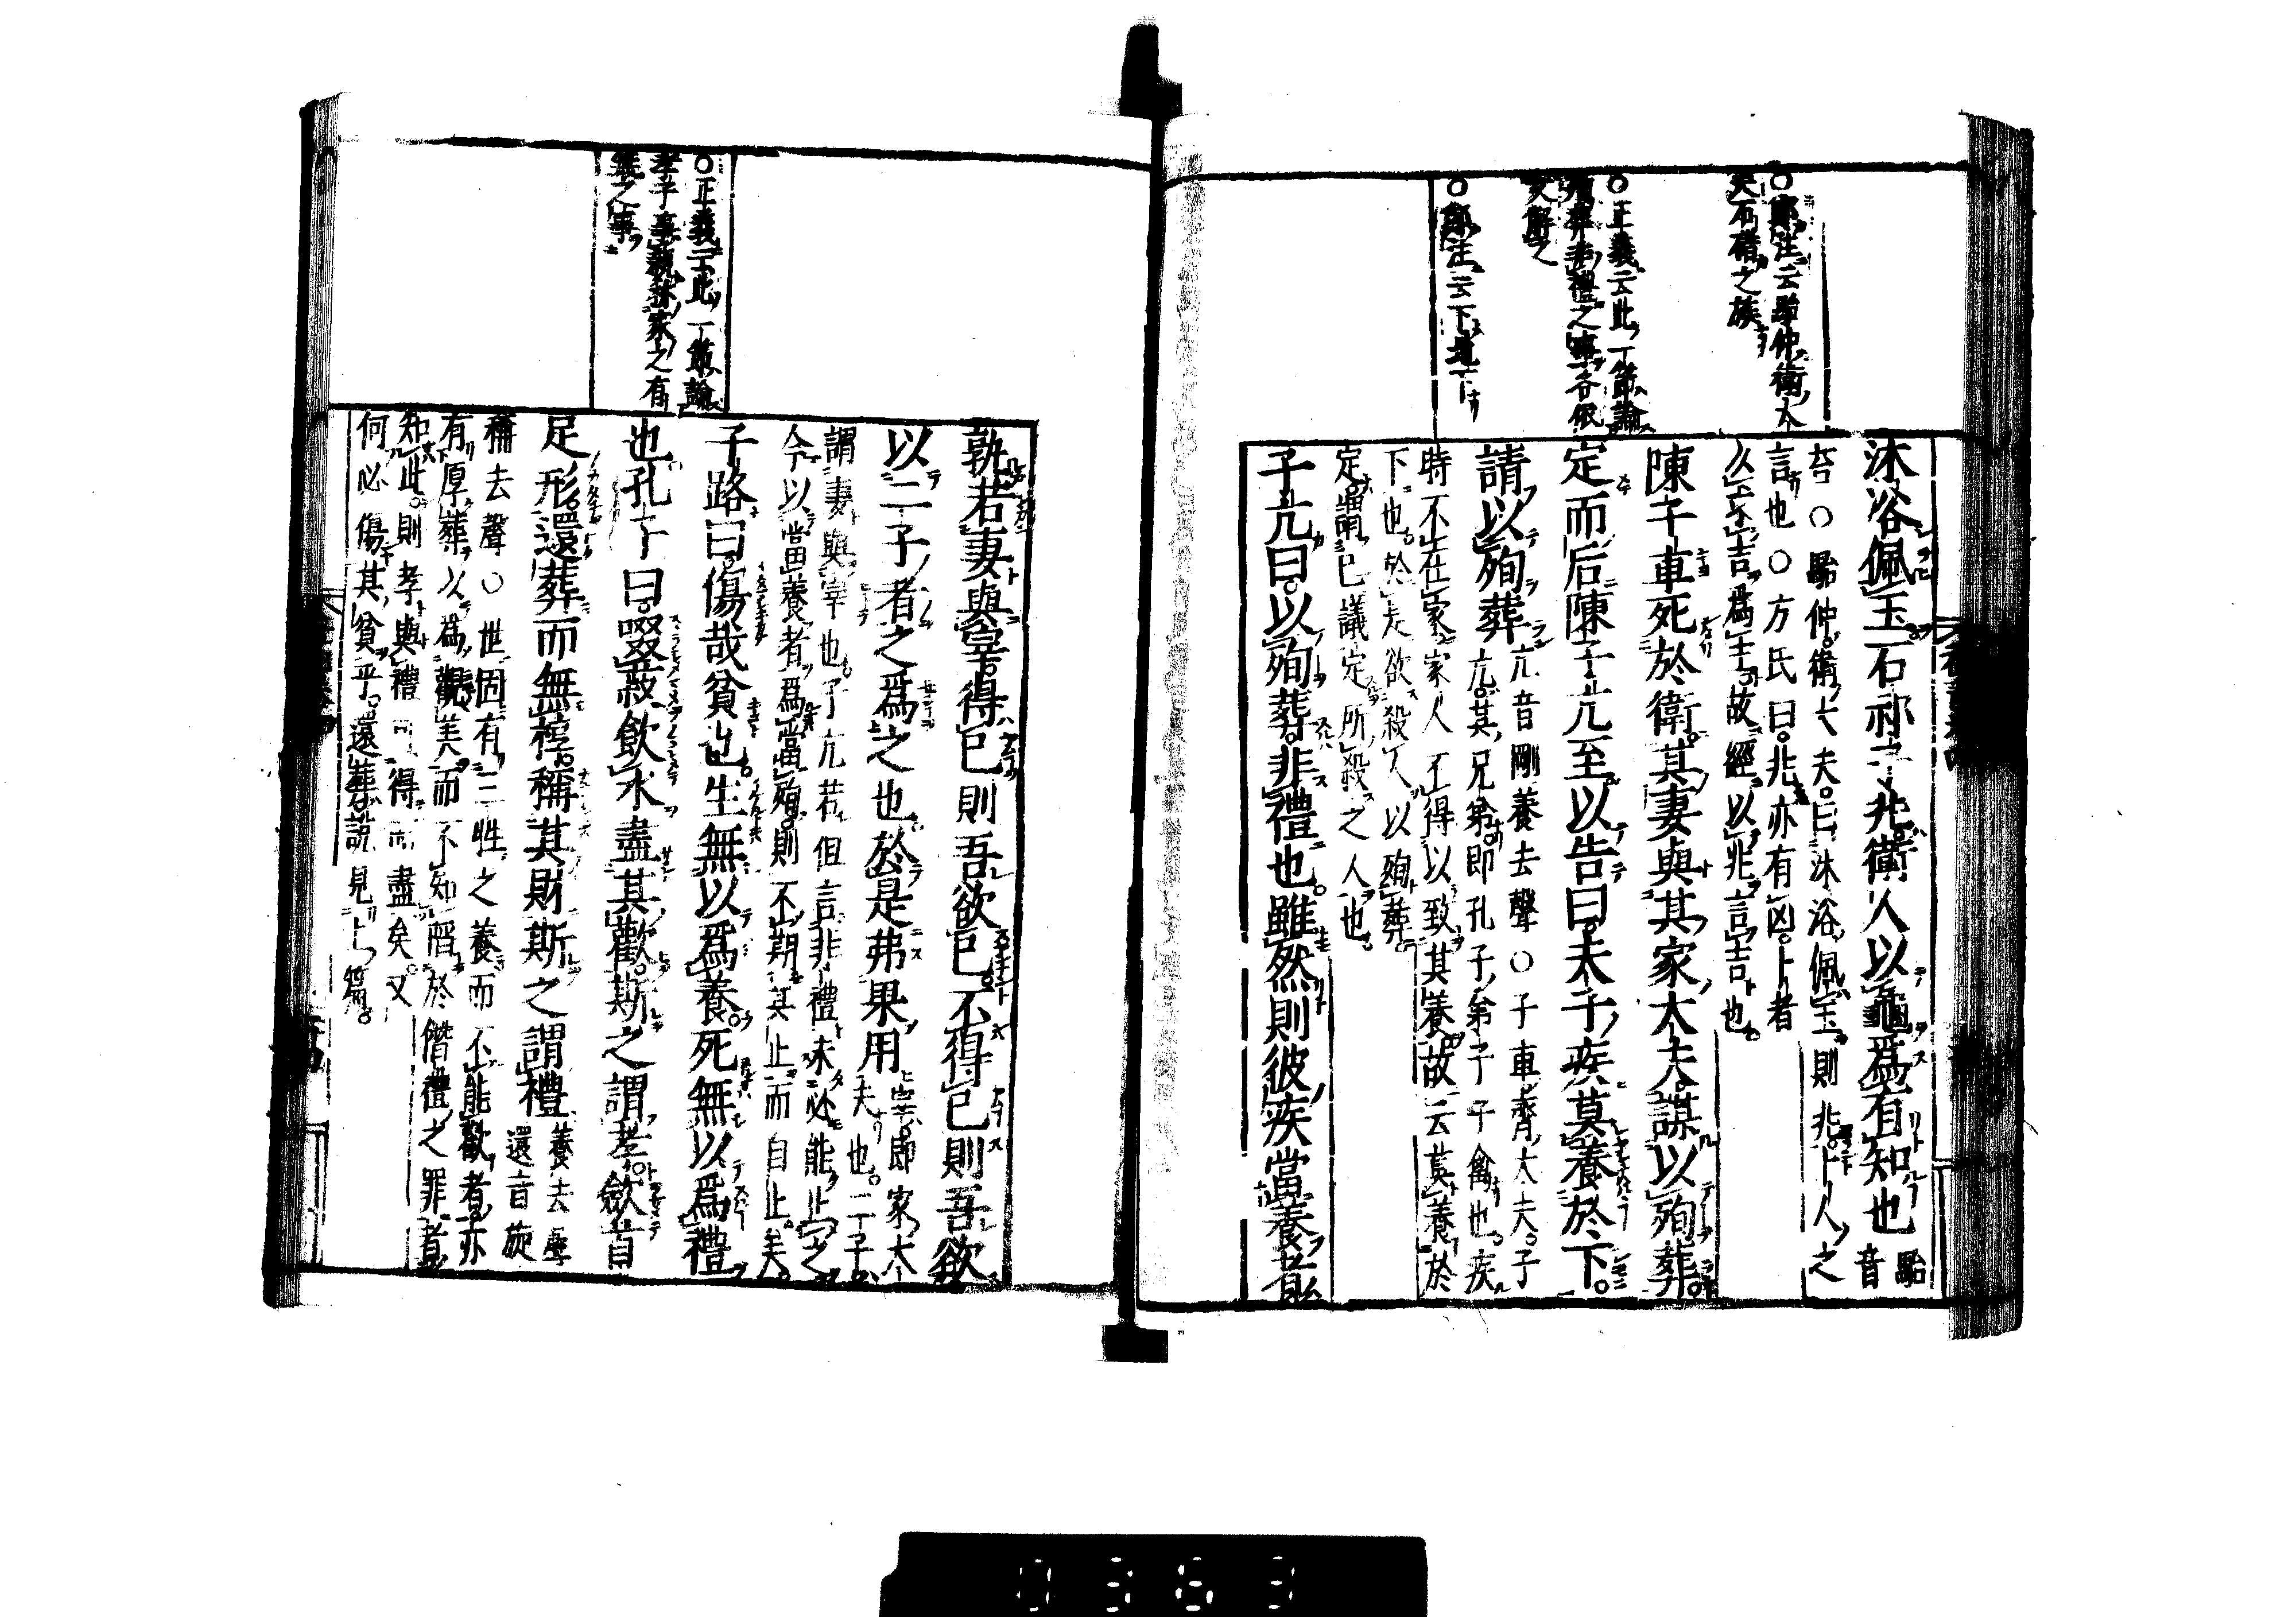 ○鄭注云駘仲衛大
夫石碏之族
○正義云此一節論
殉葬非禮之事各依
文解之
○鄭注云下地下
沐浴佩玉石祁子兆衛人以龜爲有知也 駘
音
苔○駘仲衛大夫曰沐浴佩玉則兆卜人之
言也○方氏曰兆亦有凶卜者
以求吉爲主故經以兆言吉也
陳子車死於衛其妻與其家大夫謀以殉葬
定而后陳子亢至以告曰夫子疾莫養於下
請以殉葬 亢音剛養去聲○子車齊大夫子
亢其兄弟即孔子弟子子禽也疾
時不在家家人不得以致其養故云莫養於
下也於是欲殺人以殉葬
定謂已議定所殺之人也
子亢曰以殉葬非禮也雖然則彼疾當養者
○正義云此一節論
孝子事親稱家之有
無之事
孰若妻與宰得已則吾欲已不得已則吾欲
以二子者之爲之也於是弗果用 宰即家大
夫也二子
謂妻與宰也子亢若但言非禮未必能止之
今以當養者爲當殉則不期其止而自止矣
子路曰傷哉貧也生無以爲養死無以爲禮
也孔子曰啜菽飲水盡其歡斯之謂孝斂首
足形還葬而無椁稱其財斯之謂禮 養去聲
還音旋
稱去聲○世固有三牲之養而不能歡者亦
有厚葬以爲觀美而不知陷於僭禮之罪者
知此則孝與禮可得而盡矣又
何必傷其貧乎還葬說見上篇
0363